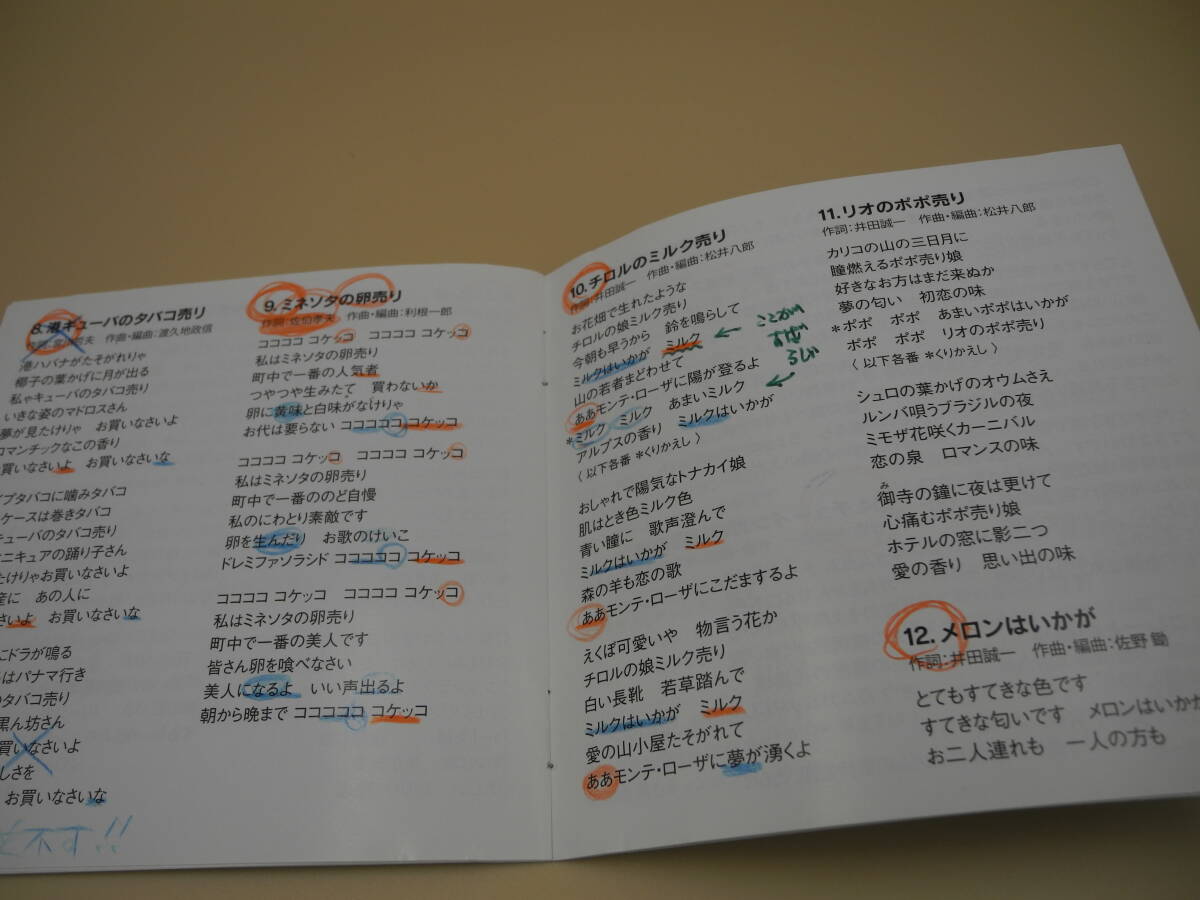 8.港キューバのタバコ売り
夫 作曲・編曲:渡久地政信
港ハバナがたそがれりゃ
椰子の葉かげに月が出る
私ゃキューバのタバコ売り
いきな姿のマドロスさん
夢が見たけりゃ お買いなさいよ
ロマンチックなこの香り
買いなさいよ お買いなさいな
プタバコに噛みタバコ
ケースは巻きタバコ
キューバのタバコ売り
ニキュアの踊り子さん
たけりゃお買いなさいよ
産に あの人に
さいよ お買いなさいな
にドラが鳴る
はパナマ行き
のタバコ売り
黒ん坊さん
買いなさいよ
しさを
お買いなさいな
不す!!
9.ミネソタの卵売り
作詞:佐伯孝夫 作曲・編曲:利根一郎
コココココ コケッコ コココココ コケッコ
私はミネソタの卵売り
町中で一番の人気者
つやつや生みたて 買わないか
卵に黄味と白味がなけりゃ
お代は要らない コココココ コケッコ
ココココ コケッコ ココココ コケッコ
私はミネソタの卵売り
町中で一番ののど自慢
私のにわとり素敵です
卵を生んだり お歌のけいこ
ドレミファソラシド コココココ コケッコ
ココココ コケッコ ココココ コケッコ
私はミネソタの卵売り
町中で一番の美人です
皆さん卵を喰べなさい
美人になるよ いい声出るよ
朝から晩まで コココココ コケッコ
10.チロルのミルク売り
作詞:井田誠一 作曲・編曲:松井八郎
お花畑で生れたような
チロルの娘ミルク売り
今朝も早うから 鈴を鳴らして
ミルクはいかが ミルク
山の若者まどわせて
ああモンテ・ローザに陽が登るよ
*ミルク ミルク あまいミルク
アルプスの香り ミルクはいかが
〈以下各番 *くりかえし〉
おしゃれで陽気なトナカイ娘
肌はとき色ミルク色
青い瞳に 歌声澄んで
ミルクはいかが ミルク
森の羊も恋の歌
ああモンテ・ローザにこだまするよ
えくぼ可愛いや 物言う花か
チロルの娘ミルク売り
白い長靴 若草踏んで
ミルクはいかが ミルク
愛の山小屋たそがれて
ああモンテ・ローザに夢が湧くよ
11.リオのポポ売り
作詞:井田誠一 作曲・編曲:松井八郎
カリコの山の三日月に
瞳燃えるポポ売り娘
好きなお方はまだ来ぬか
夢の匂い 初恋の味
*ポポ ポポ あまいポポはいかが
ポポ ポポ リオのポポ売り
〈以下各番 *くりかえし〉
シュロの葉かげのオウムさえ
ルンバ唄うブラジルの夜
ミモザ花咲くカーニバル
恋の泉 ロマンスの味
み
御寺の鐘に夜は更けて
心痛むポポ売り娘
ホテルの窓に影二つ
愛の香り 思い出の味
12.メロンはいかが
作詞:井田誠一 作曲・編曲:佐野 鋤
とてもすてきな色です
すてきな匂いです メロンはいかが
お二人連れも 一人の方も